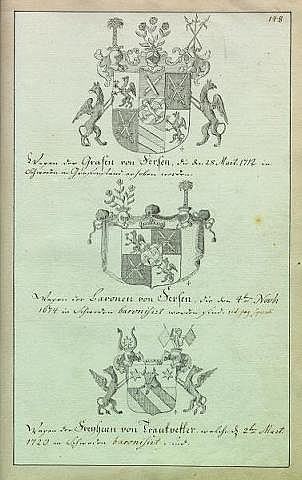 148
Wapen der Grafen von Fersen, die den 28. Mart. 1712 in
Schweden in Grafenstand erhoben worden.
Wapen der Baronen von Fersen, die den 4ten Novb
1674 in Schweden baronisirt worden sind.
Wapen der Freyherrn von Trautvetter, welche d. 2ten Mart.
1720 in Schweden baronisirt sind.